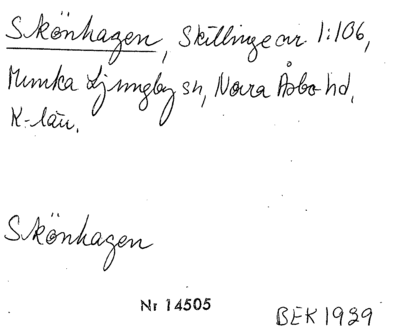 Skönhagen, Skillingear 1:106,
Munka Ljungby sn, Norra Åsbo hd,
K-län.
Skönhagen
Nr 14505
BEK 1929